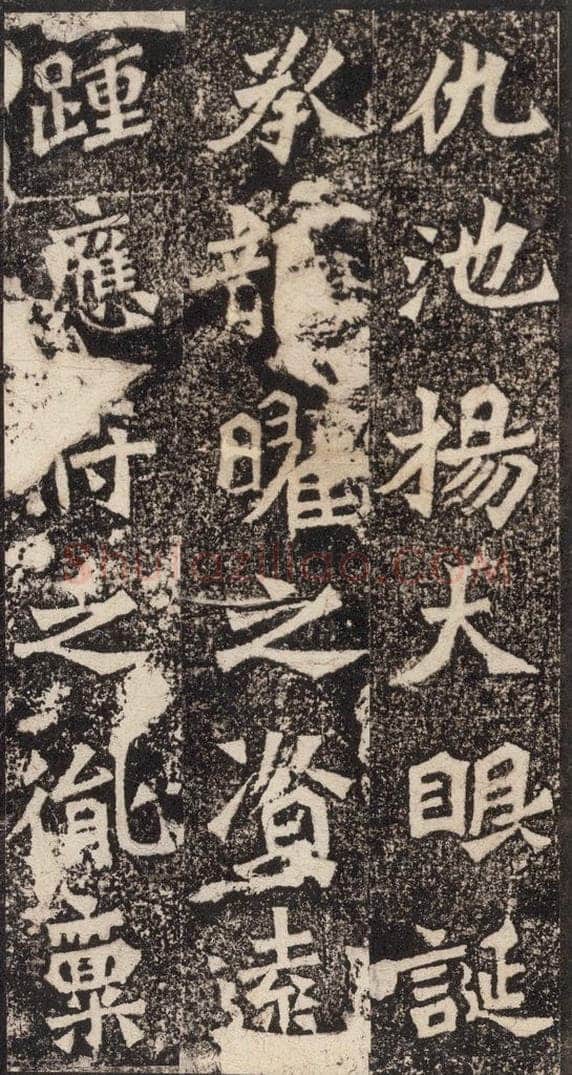 仇池楊大眼誕
承龍曜之資遠
踵應符之胤稟
shufaziliao.COM